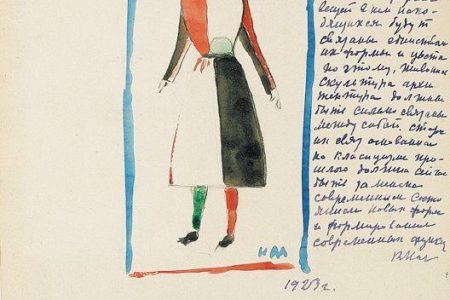 вещей в ней нахо-
дящихся будут
связаны единством
их формы и цвета
по этому, живопись
скульптура архи
тектура должны
быть сильно связаны
между собой, стара
их связ основанная
на класицизме про
шлого должна
быть заменена
современным состо
янием новых форм
и формировании
современных
КМал
1923 г.